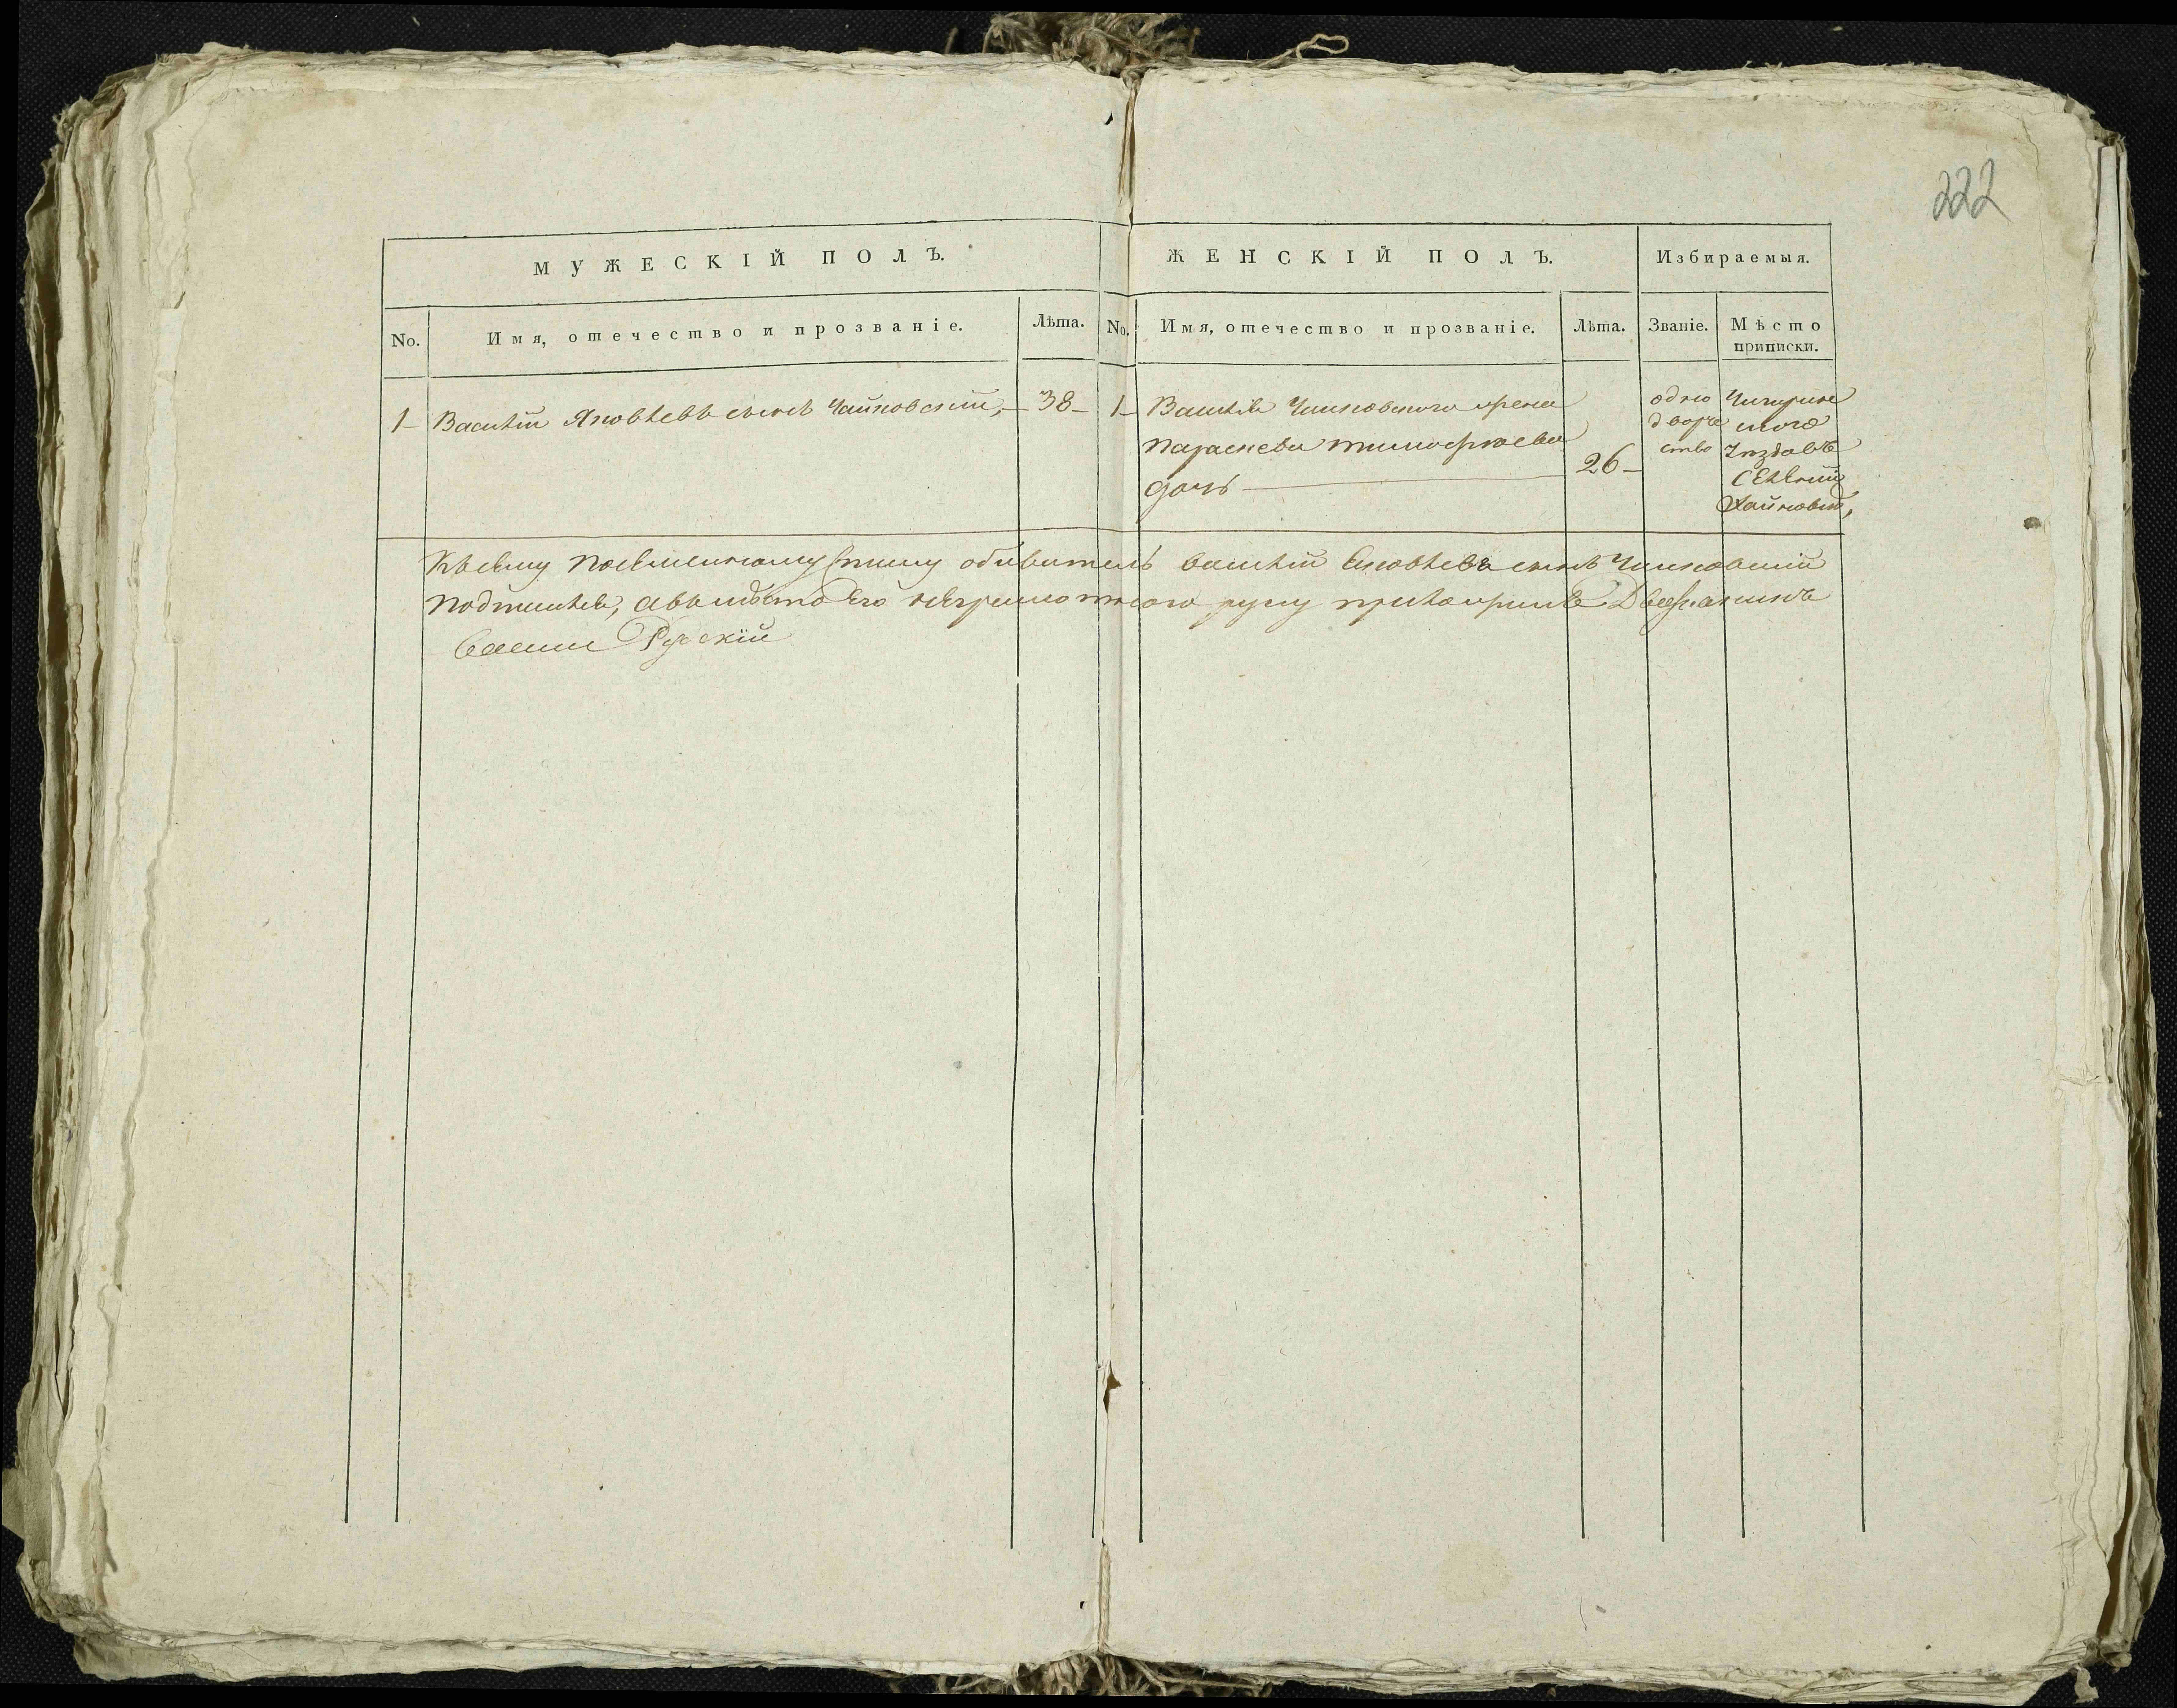 222
МУЖЕСКІЙ ПОЛЪ.
ЖЕНСКІЙ ПОЛЪ.
Избираемыя.
No.
Имя, отечество и прозваніе.
Лѣта.
No.
Имя, отечество и прозваніе.
Лѣта.
Званіе.
Мѣсто
приписки.
1 Василій Яковлевъ сынъ Чайковскій, 38
1 Василія Чайковскаго жена
Параскева Тимофеева
дочь 26
одно
дворче
ство
Чигирин
ского
уезда въ
Къ сему посемейному списку обыватель Василій Яковлевъ сынъ Чайковскій
подписался, а вместо его неграмотного руку приложилъ Дворянинъ
Русскій